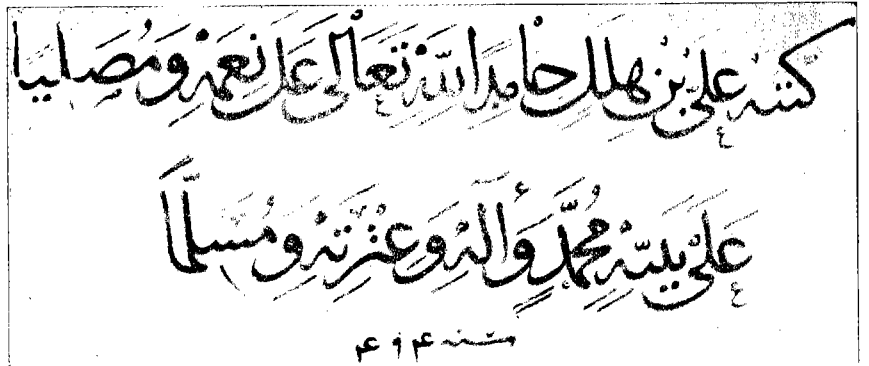 كَتَبَهُ عَلِيُّ بْنُ هِلَلٍ حَامِدًا لِلَّهِ تَعَالَى عَلَى نِعَمِهِ وَمُصَلِّيًا
عَلَى نَبِيِّهِ مُحَمَّدٍ وَآلِهِ وَعِتْرَتِهِ وَمُسَلِّمًا
سنه